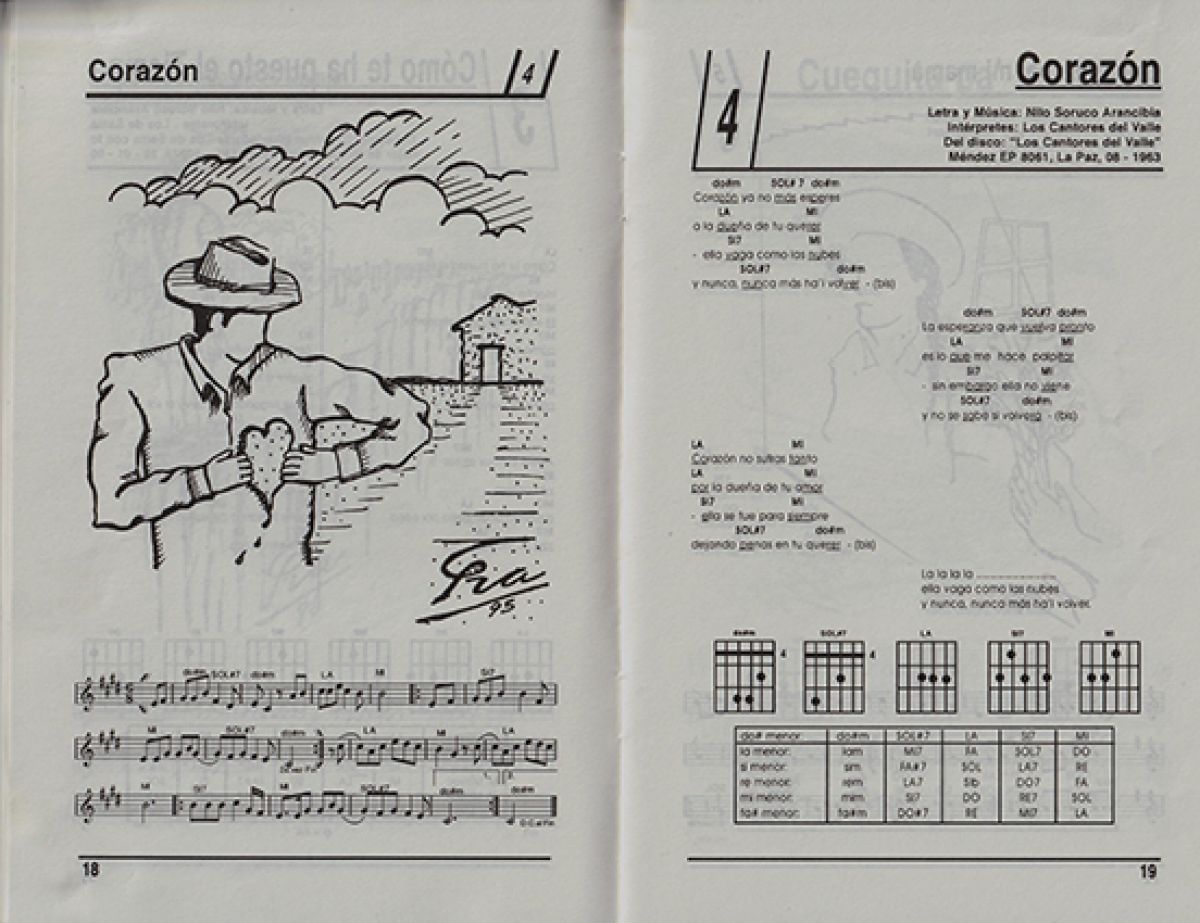 Corazón
4
Pra
95
do#m SOL#7 do#m LA MI SI7
MI SOL#7 do#m LA MI LA
1. 2.
MI SI7 MI SOL#7 do#m do#m
18
4
Corazón
Letra y Música: Nilo Soruco Arancibia
Intérpretes: Los Cantores del Valle
Del disco: "Los Cantores del Valle"
Méndez EP 8061, La Paz, 08 - 1963
do#m SOL# 7 do#m
Corazón ya no más esperes
LA MI
a la dueña de tu querer
SI7 MI
- ella vaga como las nubes
SOL#7 do#m
y nunca, nunca más ha'i volver - (bis)
do#m SOL#7 do#m
La esperanza que vuelva pronto
LA MI
es lo que me hace palpitar
SI7 MI
- sin embargo ella no viene
SOL#7 do#m
y no se sabe si volverá - (bis)
LA MI
Corazón no sufras tanto
LA MI
por la dueña de tu amor
SI7 MI
- ella se fue para siempre
SOL#7 do#m
dejando penas en tu querer - (bis)
La la la la ....................
ella vaga como las nubes
y nunca, nunca más ha'i volver.
do#m SOL#7 LA SI7 MI
4 4
do# menor: do#m SOL#7 LA SI7 MI
la menor: lam MI7 FA SOL7 DO
si menor: sim FA#7 SOL LA7 RE
re menor: rem LA7 SIb DO7 FA
mi menor: mim SI7 DO RE7 SOL
fa# menor: fa#m DO#7 RE MI7 LA
19